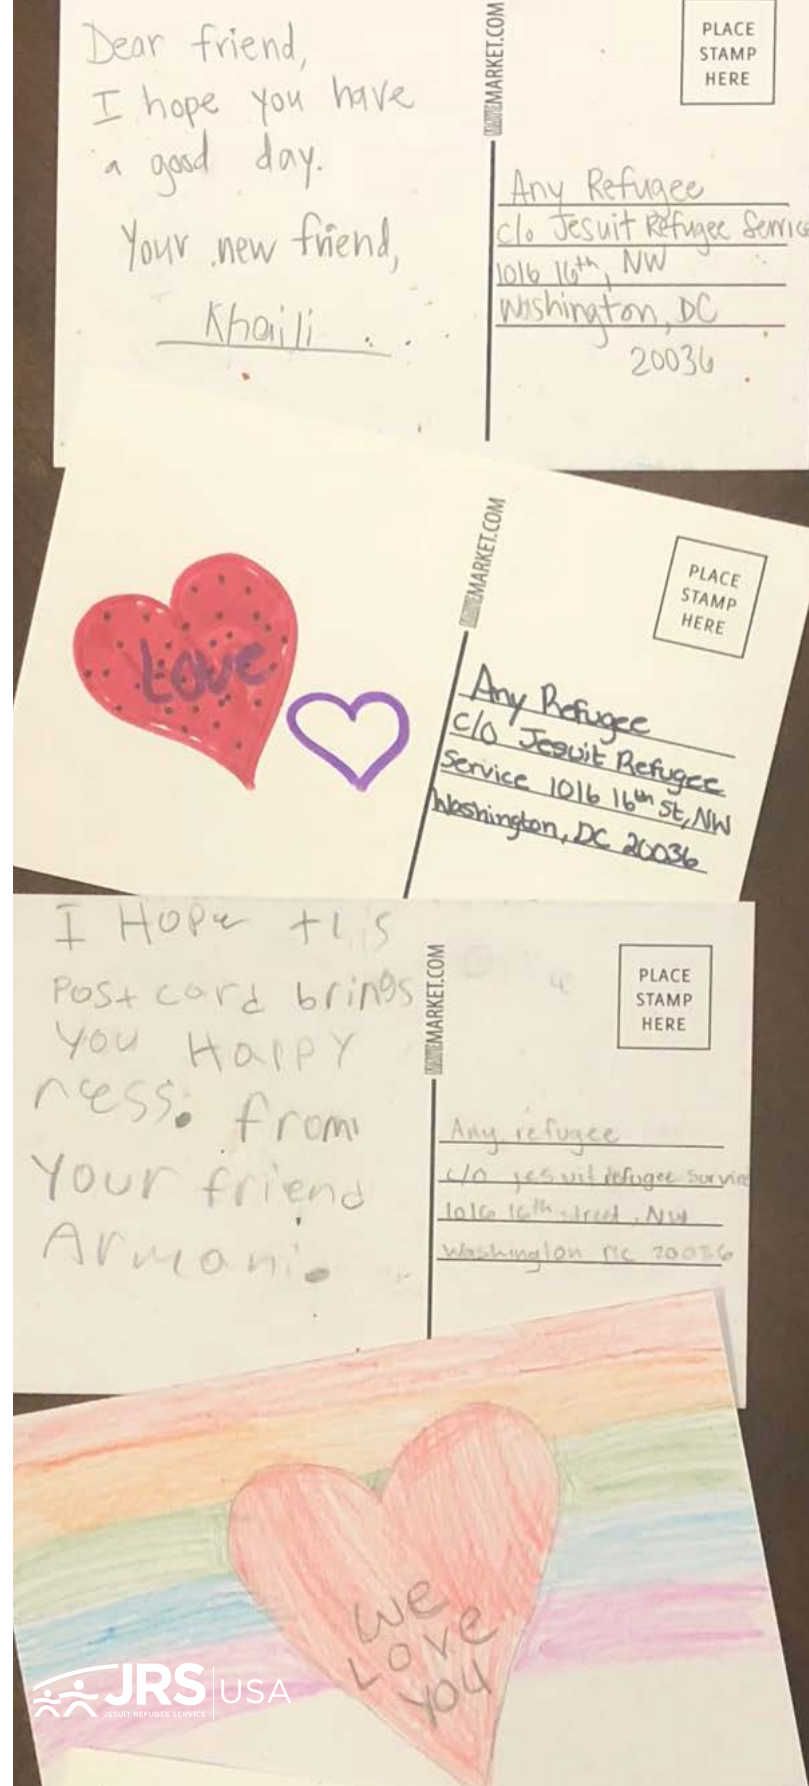 Dear friend,
I hope you have
a good day.
Your new friend,
Khaili
MARKET.COM
PLACE
STAMP
HERE
Any Refugee
c/o Jesuit Refugee Service
1016 16th, NW
Washington, DC
20036
Love
MARKET.COM
PLACE
STAMP
HERE
Any Refugee
C/O Jesuit Refugee
Service 1016 16th St, NW
Washington, DC 20036
I Hope this
Postcard brings
you Happy
ness. from
Your friend
Armani.
MARKET.COM
PLACE
STAMP
HERE
Any refugee
c/o jesuit refugee survice
1016 16th street, NW
Washington DC 20036
We
Love
You
JRS USA
JESUIT REFUGEE SERVICE